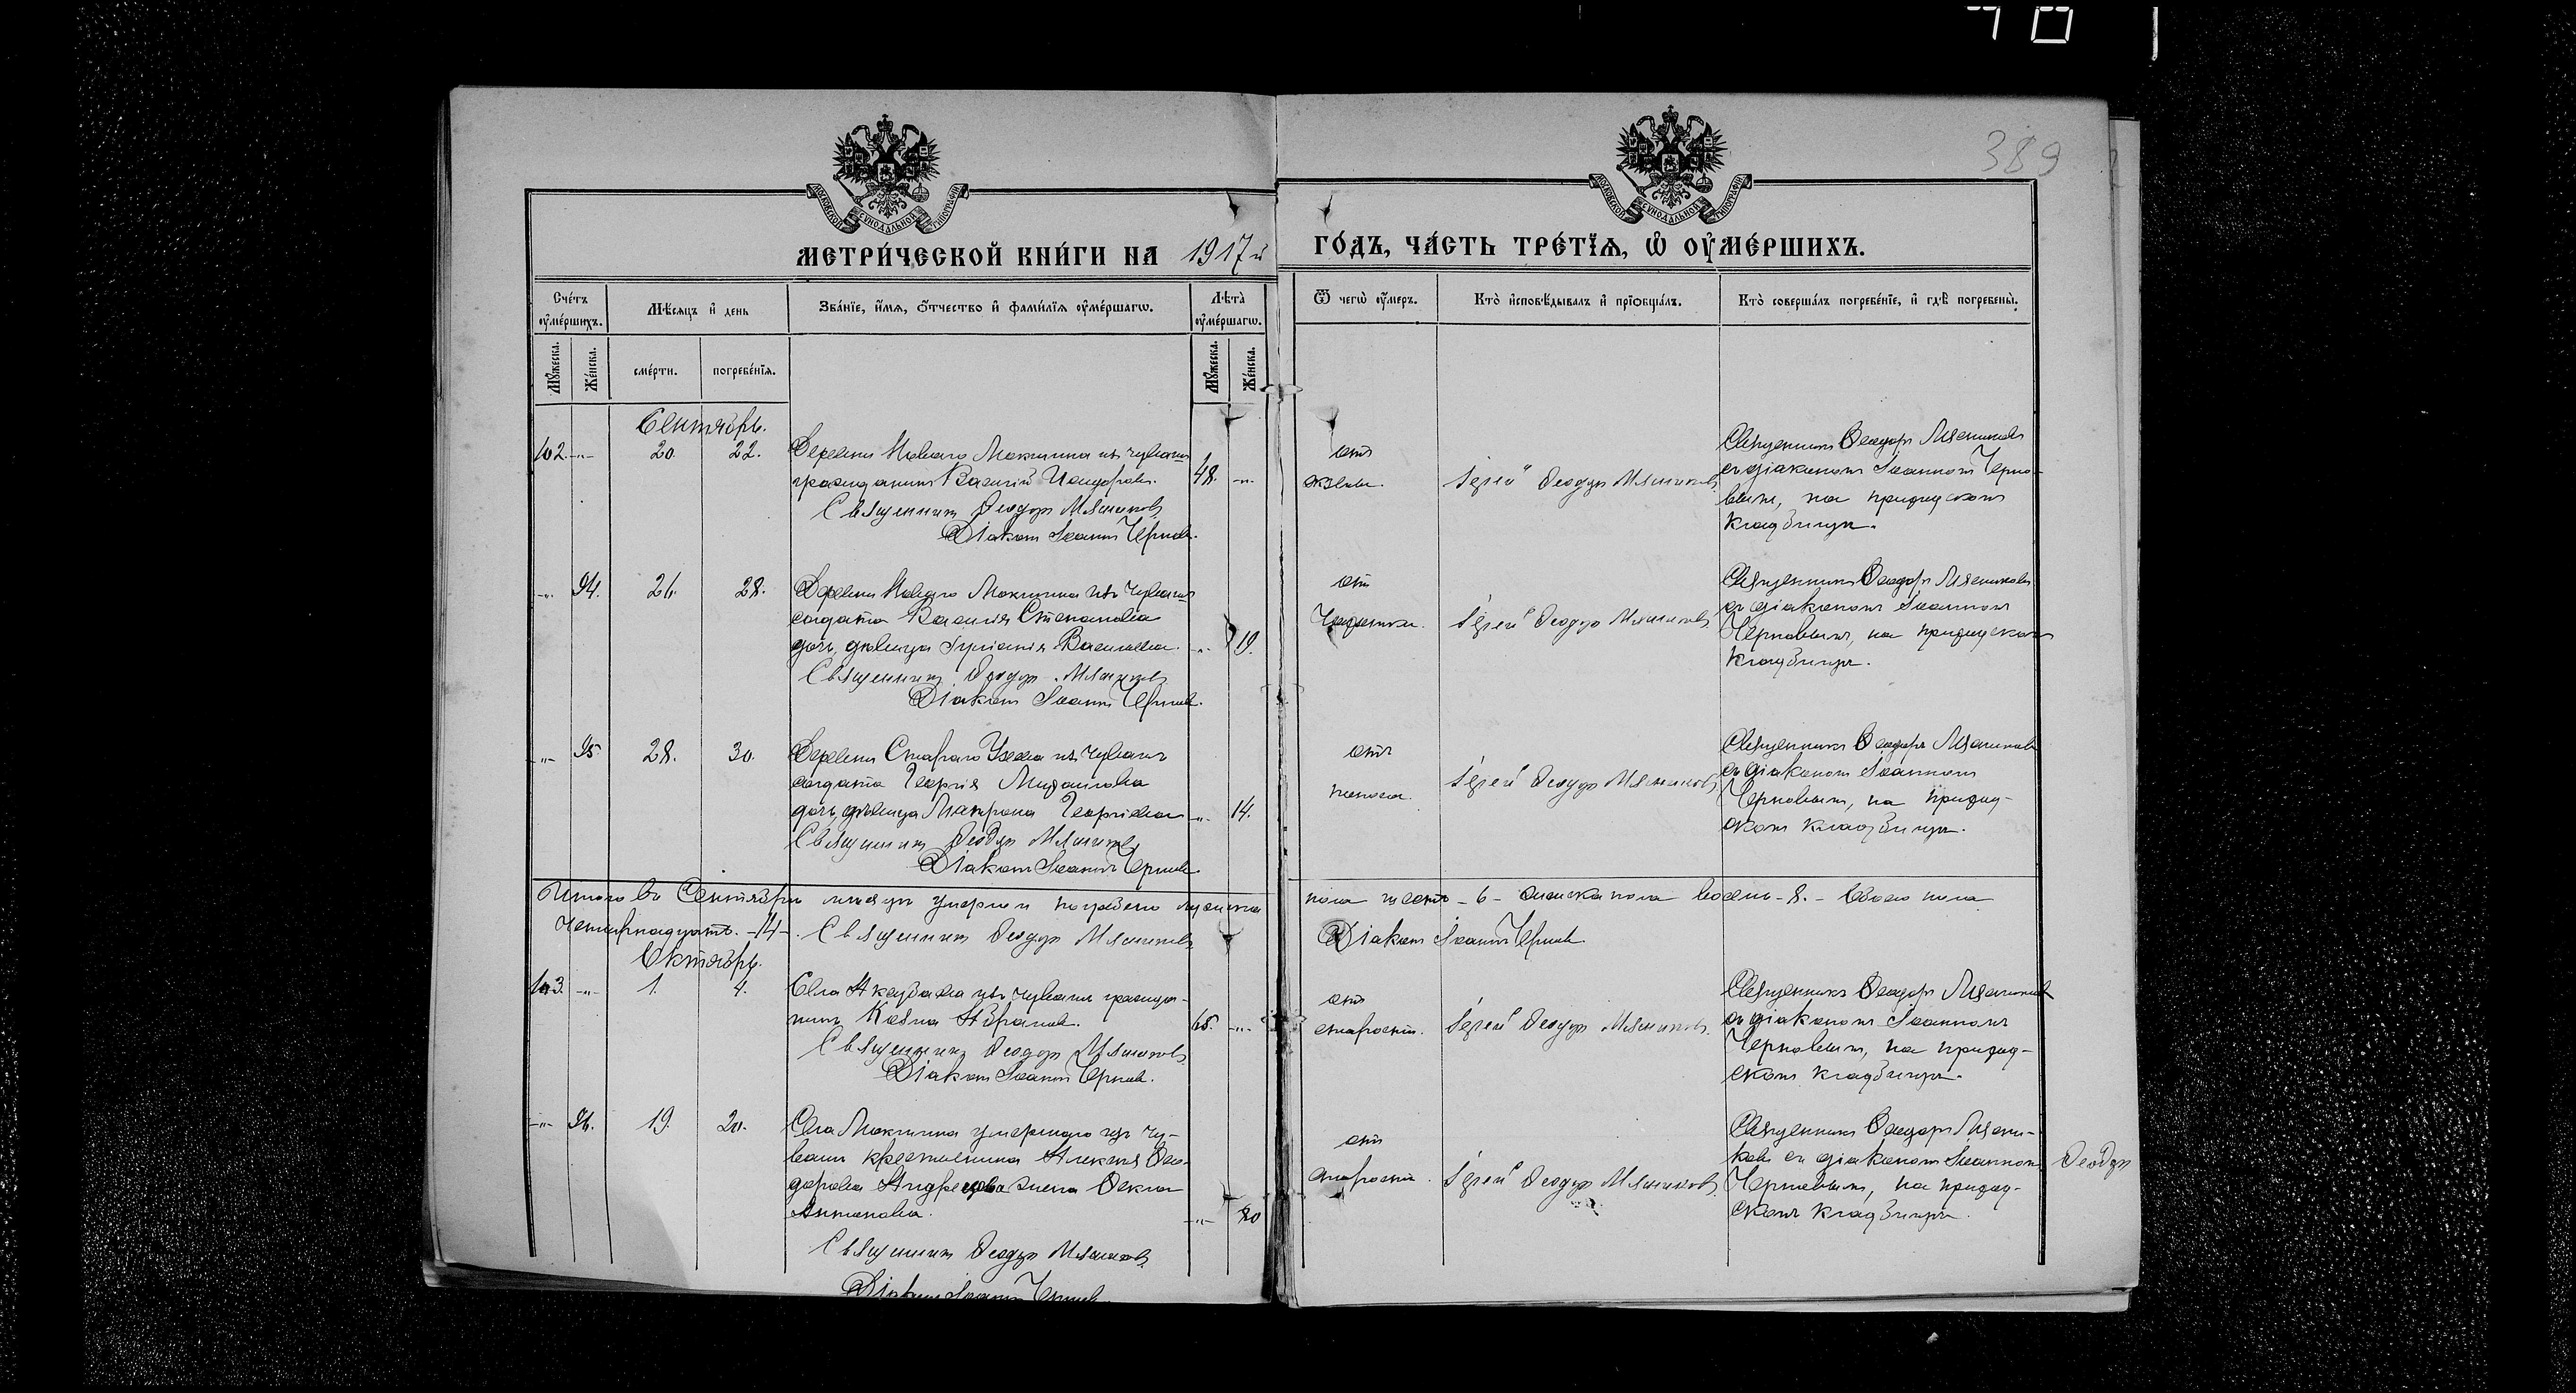 389
МЕТРИ́ЧЕСКОЙ КНИ́ГИ НА 1917й ГО́ДЪ, ЧА́СТЬ ТРЕ́ТІѦ, Ѡ҆ ОУ҆МЕ́РШИХЪ.
Сче́тъ оу҆ме́ршихъ.
Мѣ́сѧцъ и҆ день
Зва́нїе, и҆́мѧ, ѻ҆́тчество и҆ фами́лїѧ оу҆ме́ршагѡ.
Лѣ́та оу҆ме́ршагѡ.
Ѿ чегѡ̀ оу҆́меръ.
Кто̀ и҆сповѣ́дывалъ и҆ прїѻбща́лъ.
Кто̀ соверша́лъ погребе́нїе, и҆ гдѣ̀ погребены̀.
Мꙋ́жеска.
Же́нска.
сме́рти.
погребе́нїѧ.
Мꙋ́жеска.
Же́нска.
Сентябрь.
102. -„- 20. 22.
Деревни Новаго Мокшина изъ чувашъ
гражданинъ Василій
48. -„-
Священникъ Ѳеодоръ Мясников
Діаконъ Іоаннъ Чернов.
отъ
язвы.
Іерей Ѳеодоръ Мясников
Священникъ Ѳеодоръ Мясниковъ
съ діакономъ Іоанномъ Черно-
вымъ, на приходскомъ
кладбищѣ.
-„- 94. 26. 28.
Деревни Новаго Мокшина изъ чувашъ
солдата Василія Степанова
дочь, дѣвица Іуліанія Васильева. -„- 19.
Священникъ Ѳеодоръ Мясников
Діаконъ Іоаннъ Чернов.
отъ
Чахотки.
Іерей Ѳеодоръ Мясников
Священникъ Ѳеодоръ Мясниковъ
съ діакономъ Іоанномъ
Черновымъ, на приходскомъ
кладбищѣ.
-„- 95. 28. 30.
Деревни Стараго Узеева изъ чувашъ
солдата Георгія Михаилова
дочь, дѣвица Матрона Георгіева -„- 14.
Священникъ Ѳеодоръ Мясников
Діаконъ Іоаннъ Чернов.
отъ
поноса.
Іерей Ѳеодоръ Мясников
Священникъ Ѳеодоръ Мясниковъ
съ діакономъ Іоанномъ
Черновымъ, на приход-
скомъ кладбищѣ.
Итого въ Сентябрѣ мѣсяцѣ умерло и погребено мужеска пола шесть -6- женска пола восемь -8.- Обоего пола
четырнадцать. -14-. Священникъ Ѳеодоръ Мясников Діаконъ Іоаннъ Чернов
Октябрь.
103. -„- 1. 4.
Села Аксубаева изъ чувашъ гражда-
нинъ Косма Абрамов. 65. -„-
Священникъ Ѳеодоръ Мясников
Діаконъ Іоаннъ Чернов.
отъ
старости.
Іерей Ѳеодоръ Мясников
Священникъ Ѳеодоръ Мясниковъ
съ діакономъ Іоанномъ
Черновымъ, на приход-
скомъ кладбищѣ.
-„- 96. 19. 20.
Села Мокшина умершаго изъ чу-
вашъ крестьянина Алексѣя Ѳео-
дорова Андрецова жена Ѳекла
Антонова. -„- 80
Священникъ Ѳеодоръ Мясников
Діаконъ Іоаннъ Чернов.
отъ
старости.
Іерей Ѳеодоръ Мясников
Священникъ Ѳеодоръ Мясни-
ковъ съ діакономъ Іоанномъ
Черновымъ, на приход-
скомъ кладбищѣ.
Ѳеодор